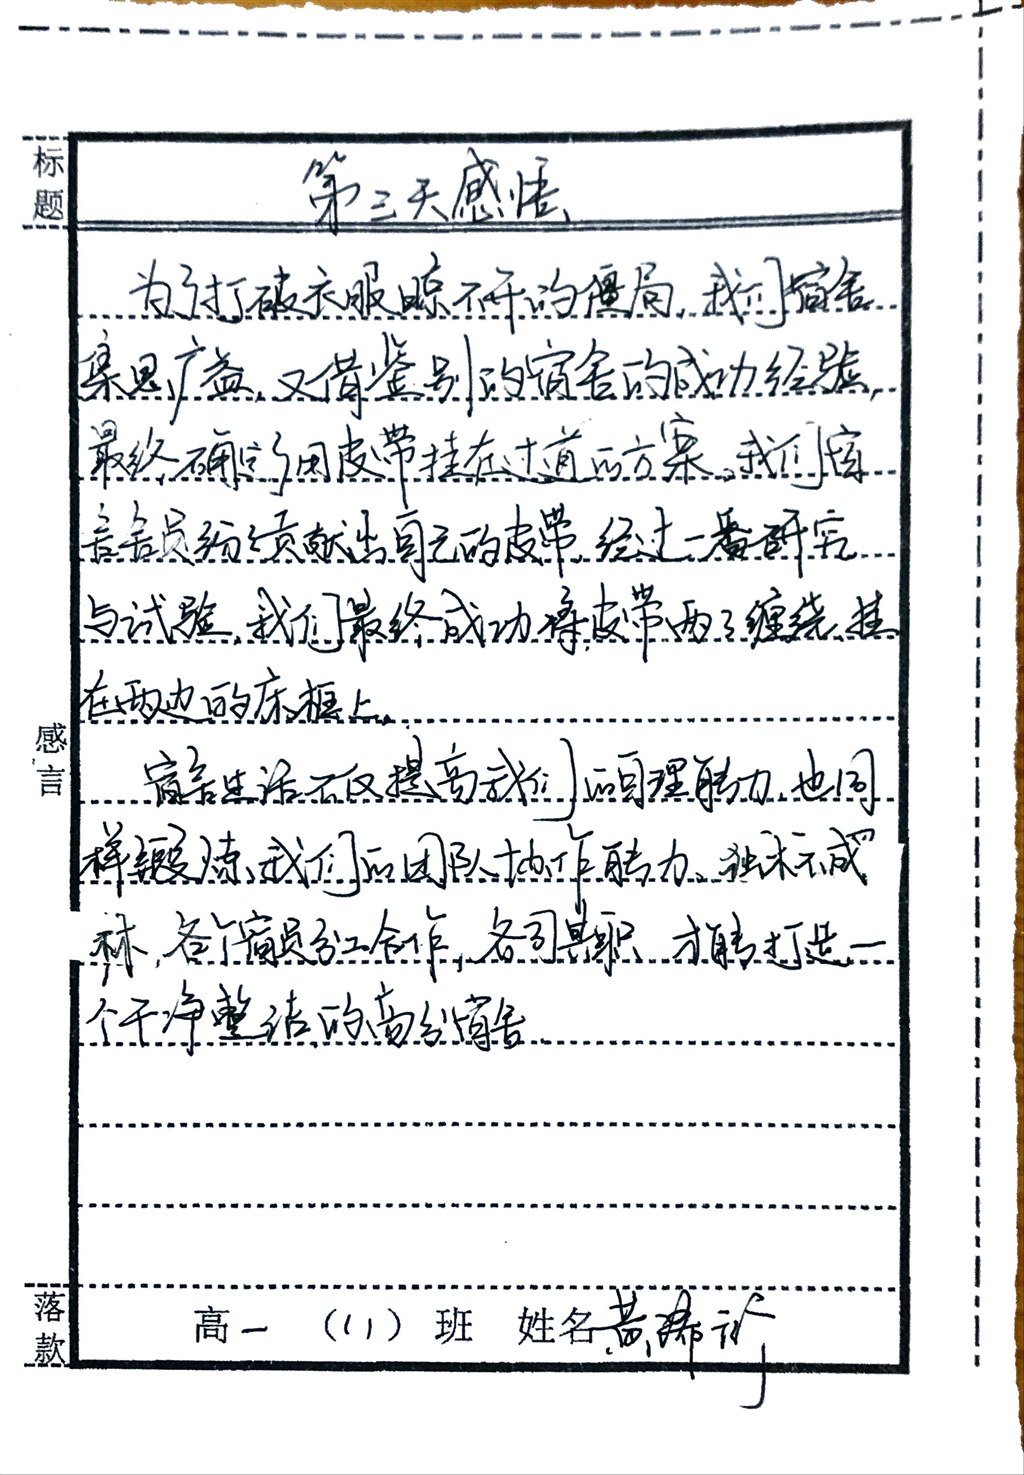 标题
第三天感悟
为了打破衣服晾不开的僵局，我们宿舍
集思广益，又借鉴别的宿舍的成功经验，
最终确定了用皮带挂在过道的方案。我们宿
舍舍员纷纷贡献出自己的皮带，经过一番研究
与试验，我们最终成功将皮带两两缠绕，挂
在两边的床框上。
感言
宿舍生活不仅提高我们的自理能力，也同
样锻炼我们的团队协作能力。独木不成
林，各个宿员分工合作，各司其职 才能打造一
个干净整洁的高分宿舍
落款
高一 （11）班 姓名黄